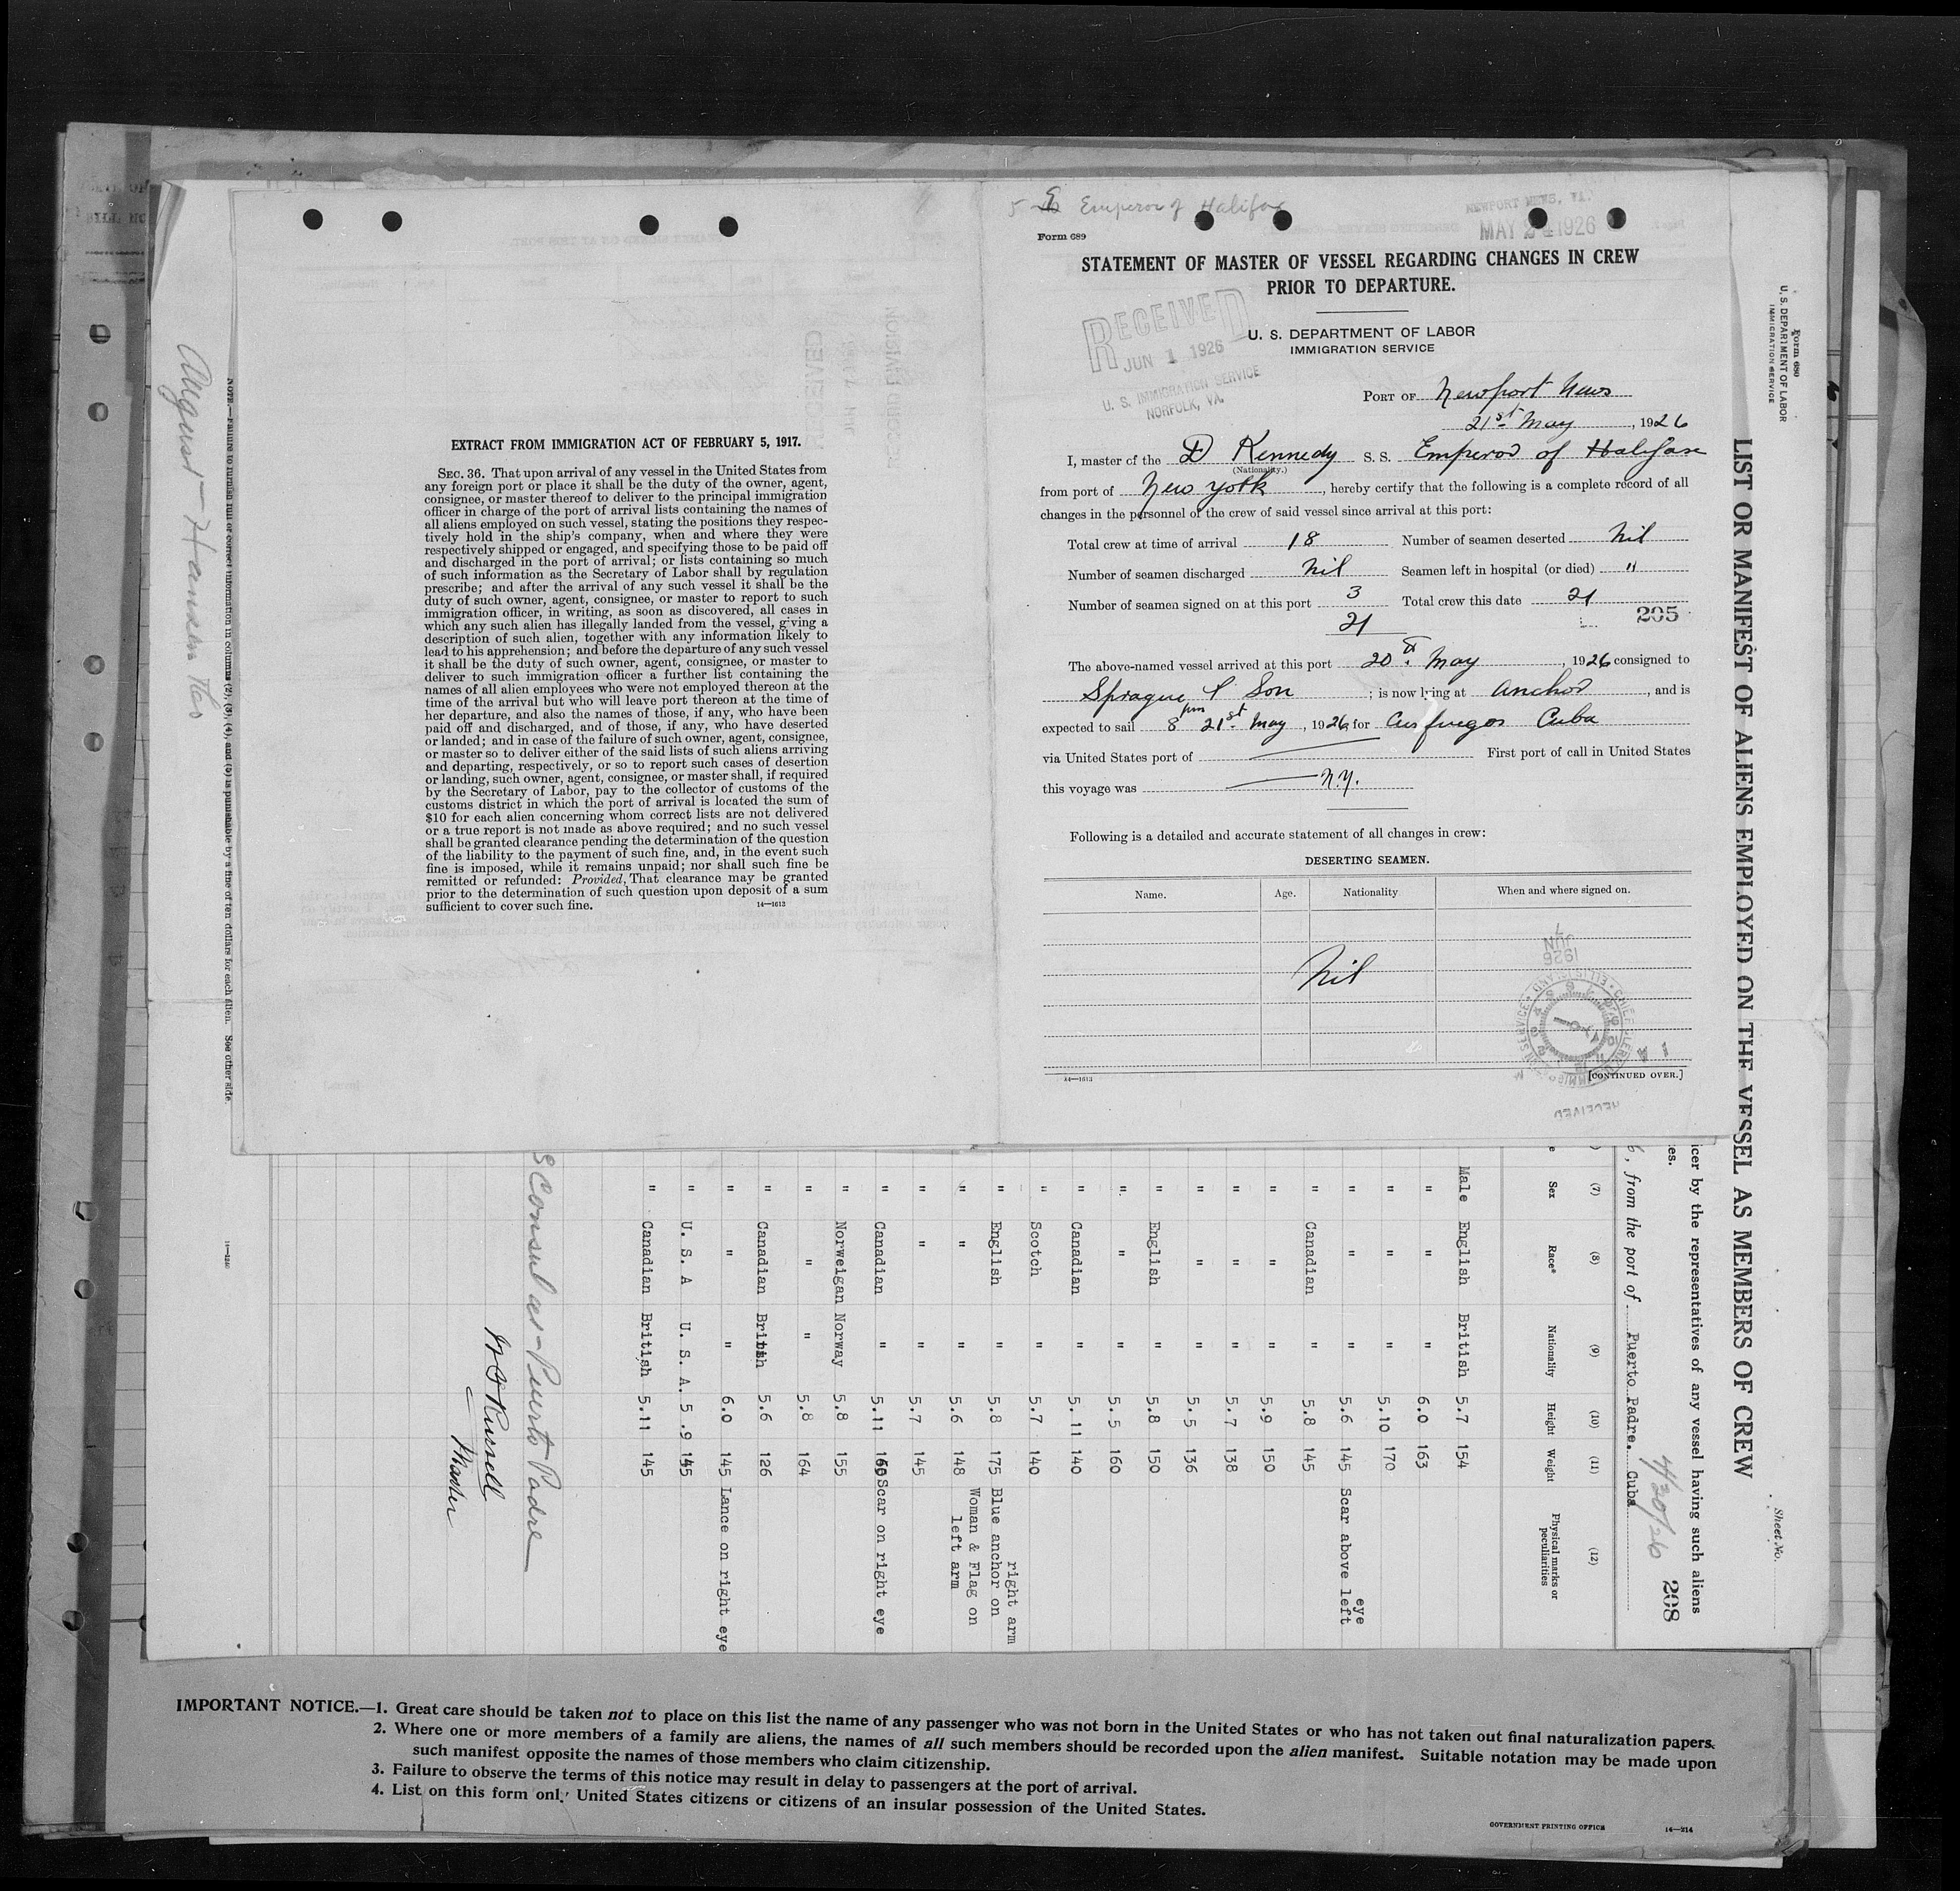 5 Emperor of Halifax
NEWPORT NEWS, VA.
MAY 24 1926
Form 689
STATEMENT OF MASTER OF VESSEL REGARDING CHANGES IN CREW
PRIOR TO DEPARTURE.
RECEIVED
JUN 1 1926
U. S. IMMIGRATION SERVICE
NORFOLK, VA.
U. S. DEPARTMENT OF LABOR
IMMIGRATION SERVICE
PORT OF Newport News
21st May, 1926
I, master of the D Kennedy S. S. Emperor of Halifax
(Nationality.)
from port of New York, hereby certify that the following is a complete record of all
changes in the personnel of the crew of said vessel since arrival at this port:
Total crew at time of arrival 18 Number of seamen deserted Nil
Number of seamen discharged Nil Seamen left in hospital (or died) "
Number of seamen signed on at this port 3 Total crew this date 21
21 205
The above-named vessel arrived at this port 20th May, 1926 consigned to
Sprague & Son; is now lying at anchor, and is
expected to sail 8 pm 21st May, 1926, for Cienfuegos Cuba
via United States port of First port of call in United States
this voyage was N.Y.
Following is a detailed and accurate statement of all changes in crew:
DESERTING SEAMEN.
Name. Age. Nationality When and where signed on.
Nil
1926
JUN
7
RECEIVED
14—1613 [CONTINUED OVER.]
EXTRACT FROM IMMIGRATION ACT OF FEBRUARY 5, 1917.
SEC. 36. That upon arrival of any vessel in the United States from
any foreign port or place it shall be the duty of the owner, agent,
consignee, or master thereof to deliver to the principal immigration
officer in charge of the port of arrival lists containing the names of
all aliens employed on such vessel, stating the positions they respec-
tively hold in the ship's company, when and where they were
respectively shipped or engaged, and specifying those to be paid off
and discharged in the port of arrival; or lists containing so much
of such information as the Secretary of Labor shall by regulation
prescribe; and after the arrival of any such vessel it shall be the
duty of such owner, agent, consignee, or master to report to such
immigration officer, in writing, as soon as discovered, all cases in
which any such alien has illegally landed from the vessel, giving a
description of such alien, together with any information likely to
lead to his apprehension; and before the departure of any such vessel
it shall be the duty of such owner, agent, consignee, or master to
deliver to such immigration officer a further list containing the
names of all alien employees who were not employed thereon at the
time of the arrival but who will leave port thereon at the time of
her departure, and also the names of those, if any, who have been
paid off and discharged, and of those, if any, who have deserted
or landed; and in case of the failure of such owner, agent, consignee,
or master so to deliver either of the said lists of such aliens arriving
and departing, respectively, or so to report such cases of desertion
or landing, such owner, agent, consignee, or master shall, if required
by the Secretary of Labor, pay to the collector of customs of the
customs district in which the port of arrival is located the sum of
$10 for each alien concerning whom correct lists are not delivered
or a true report is not made as above required; and no such vessel
shall be granted clearance pending the determination of the question
of the liability to the payment of such fine, and, in the event such
fine is imposed, while it remains unpaid; nor shall such fine be
remitted or refunded: Provided, That clearance may be granted
prior to the determination of such question upon deposit of a sum
sufficient to cover such fine. 14—1613
Form 680
U. S. DEPARTMENT OF LABOR
IMMIGRATION SERVICE
Sheet No.
LIST OR MANIFEST OF ALIENS EMPLOYED ON THE VESSEL AS MEMBERS OF CREW
icer by the representatives of any vessel having such aliens
4/20/26 208
6, from the port of Puerto Padre. Cuba
(7) (8) (9) (10) (11) (12)
Sex Race* Nationality Height Weight Physical marks or peculiarities
Male English British 5.7 154
" " " 6.0 163
" " " 5.10 170
" " " 5.6 145 Scar above left eye
" Canadian " 5.8 145
" " " 5.9 150
" " " 5.7 138
" " " 5.5 136
" English " 5.8 150
" " " 5.5 160
" Canadian " 5.11 140
" Scotch " 5.7 140
" English " 5.8 175 Blue anchor on right arm
" " " 5.6 148 Woman & Flag on left arm
" " " 5.7 145
" Canadian " 5.11 160 Scar on right eye
" Norweigan Norway 5.8 155
" " " 5.8 164
" Canadian British 5.6 126
" " " 6.0 145 Lance on right eye
" U. S. A U. S. A. 5.9 145
" Canadian British 5.11 145
S Consul at Puerto Padre
Russell
Master
NOTE.—Failure to furnish full or correct information in columns (2), (3), (4), and (5) is punishable by a fine of ten dollars for each alien. See other side.
14—1240
August
IMPORTANT NOTICE.—1. Great care should be taken not to place on this list the name of any passenger who was not born in the United States or who has not taken out final naturalization papers.
2. Where one or more members of a family are aliens, the names of all such members should be recorded upon the alien manifest. Suitable notation may be made upon
such manifest opposite the names of those members who claim citizenship.
3. Failure to observe the terms of this notice may result in delay to passengers at the port of arrival.
4. List on this form only United States citizens or citizens of an insular possession of the United States.
GOVERNMENT PRINTING OFFICE 14—214